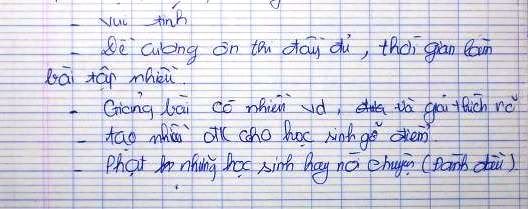 - vui tính
- Đề cương ôn thi đầy đủ, thời gian làm
bài tập nhiều.
- Giảng bài có nhiều vd, và giải thích rõ
- tạo nhiều đk cho học sinh gỡ điểm
- Phạt những học sinh hay nó chuyện (Đánh dấu)